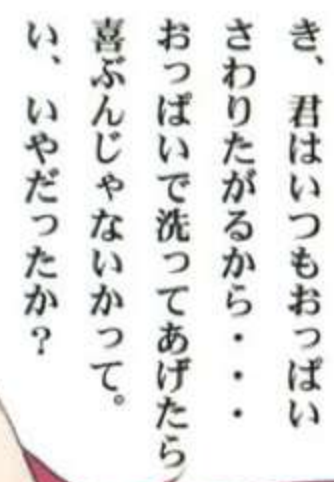 き、君はいつもおっぱい
さわりたがるから・・・
おっぱいで洗ってあげたら
喜ぶんじゃないかって。
い、いやだったか？